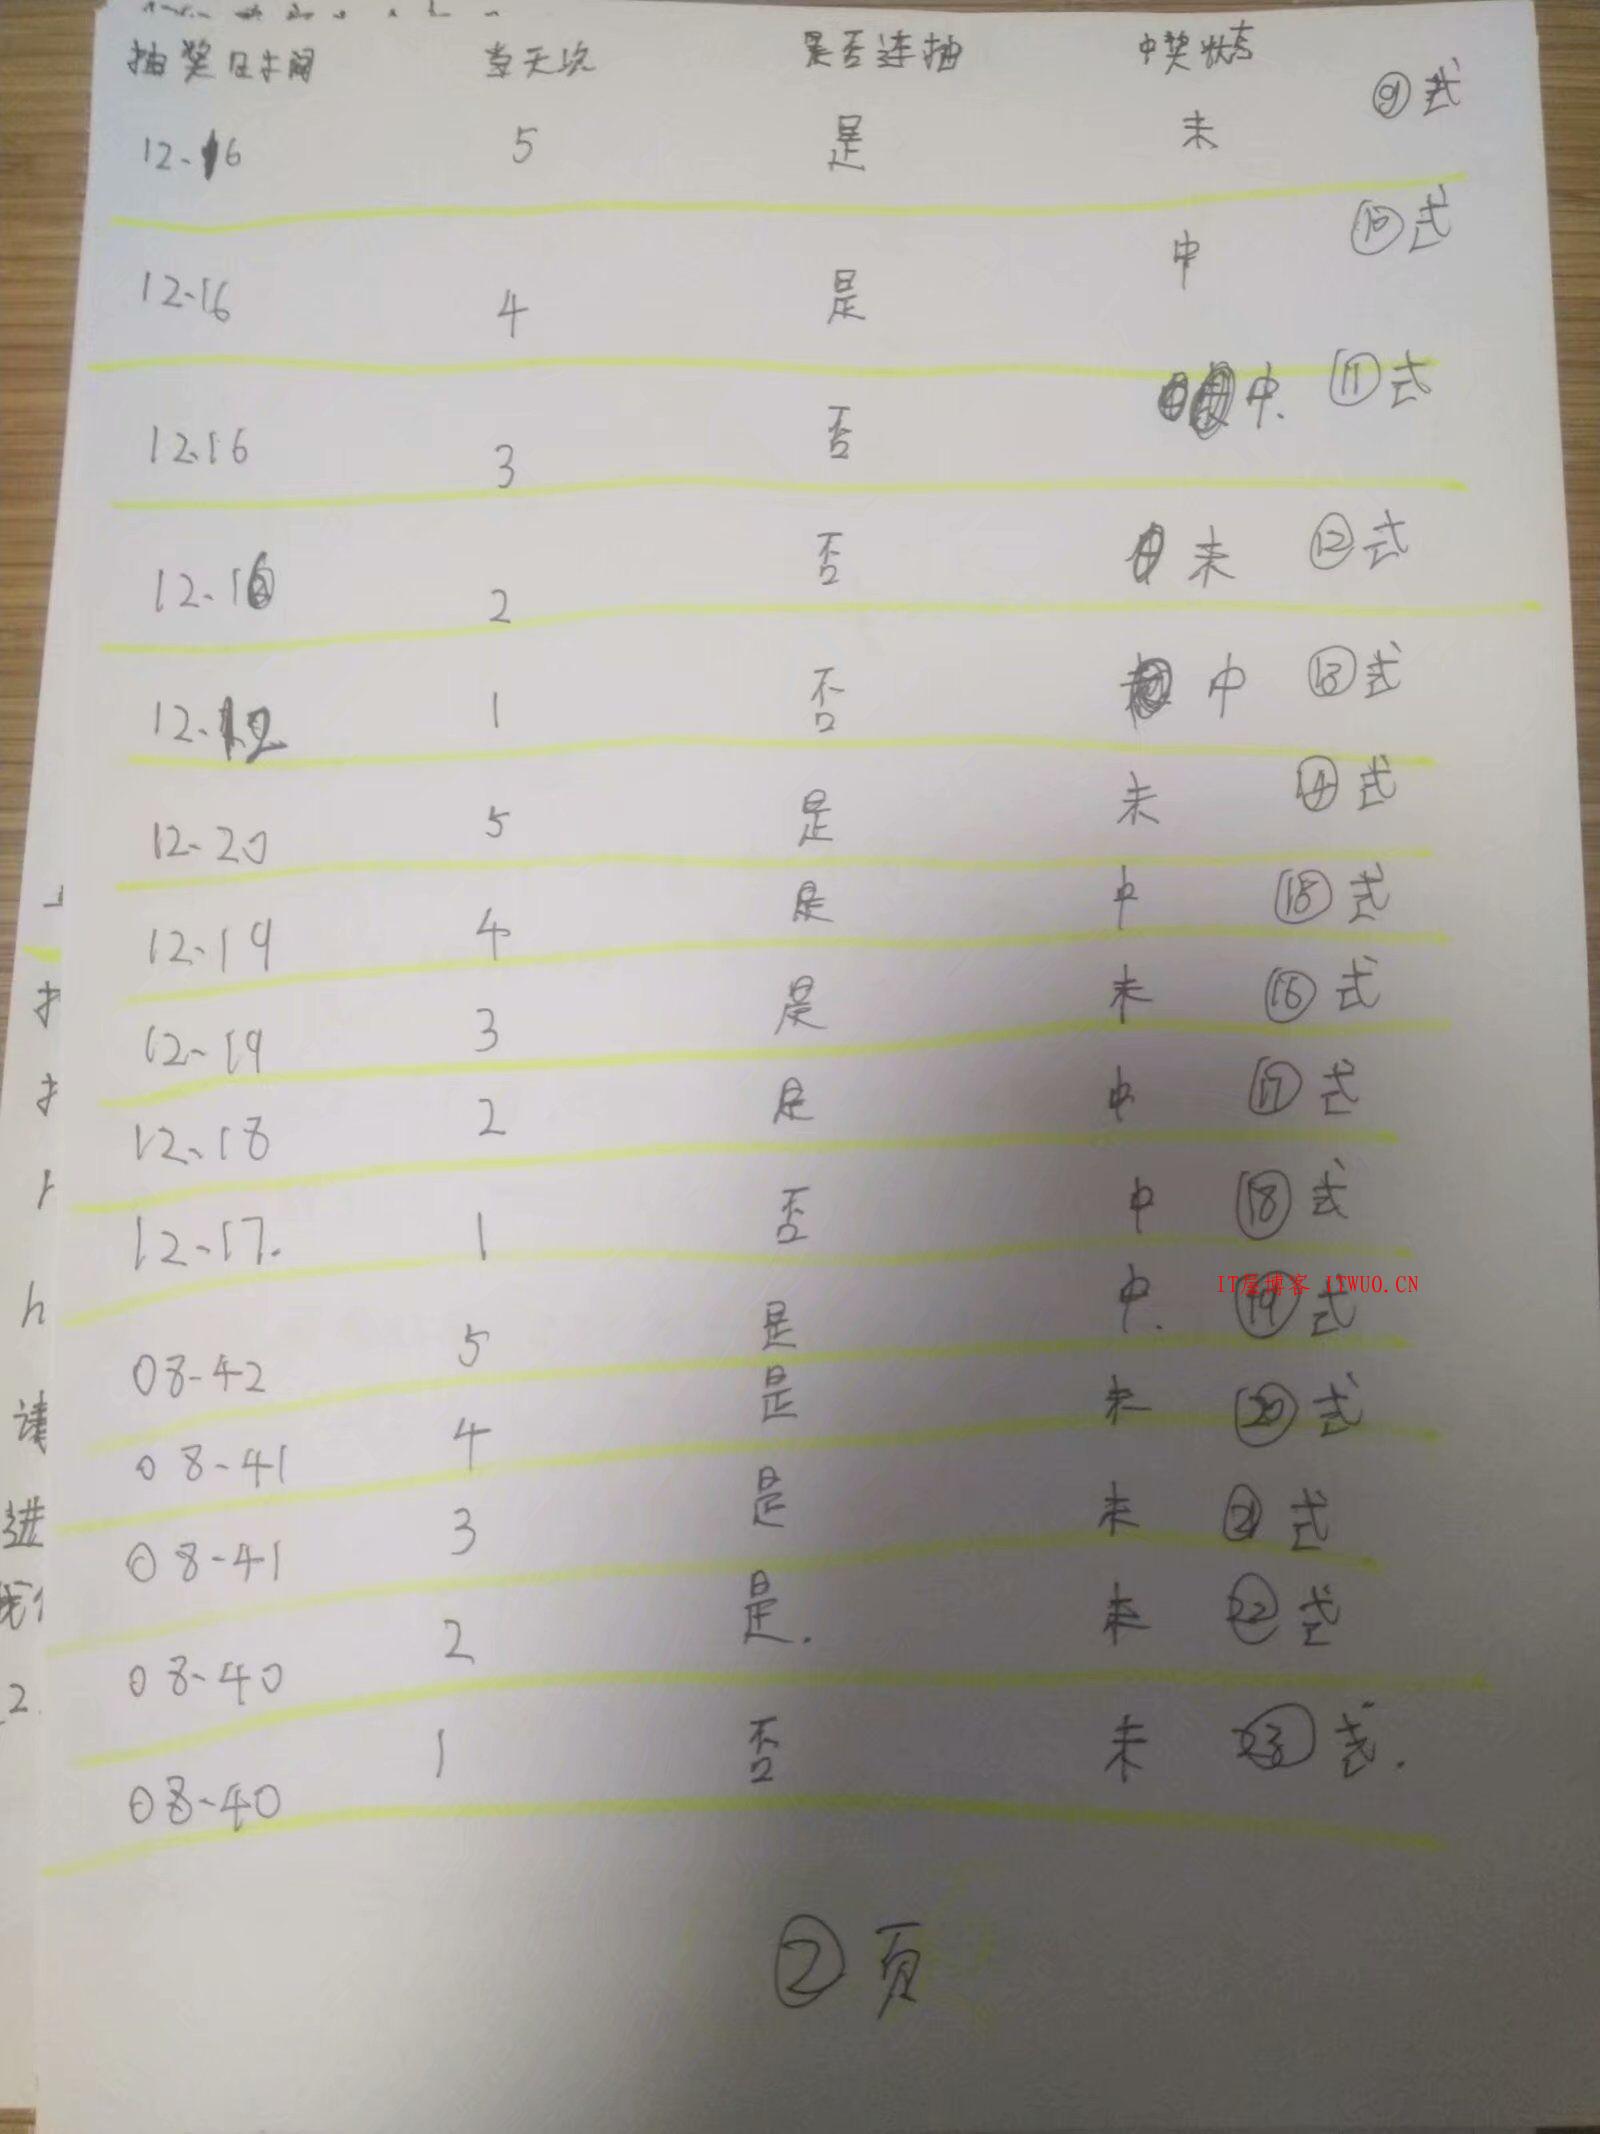 抽奖时间 当天次 是否连抽 中奖状态
⑨式
12-16 5 是 未
⑩式
12-16 4 是 中
12.16 3 否 中. ⑪式
12.16 2 否 未 ⑫式
12.12 1 否 中 ⑬式
12-20 5 是 未 ⑭式
12-19 4 是 中 ⑮式
12-19 3 是 未 ⑯式
12-18 2 是 中 ⑰式
12-17. 1 否 中 ⑱式
IT屋博客 ITWUO.CN
08-42 5 是 中. ⑲式
08-41 4 是 未 ⑳式
08-41 3 是 未 ㉑式
08-40 2 是. 未 ㉒式
08-40 1 否 未 ㉓式.
②页
请
进
2